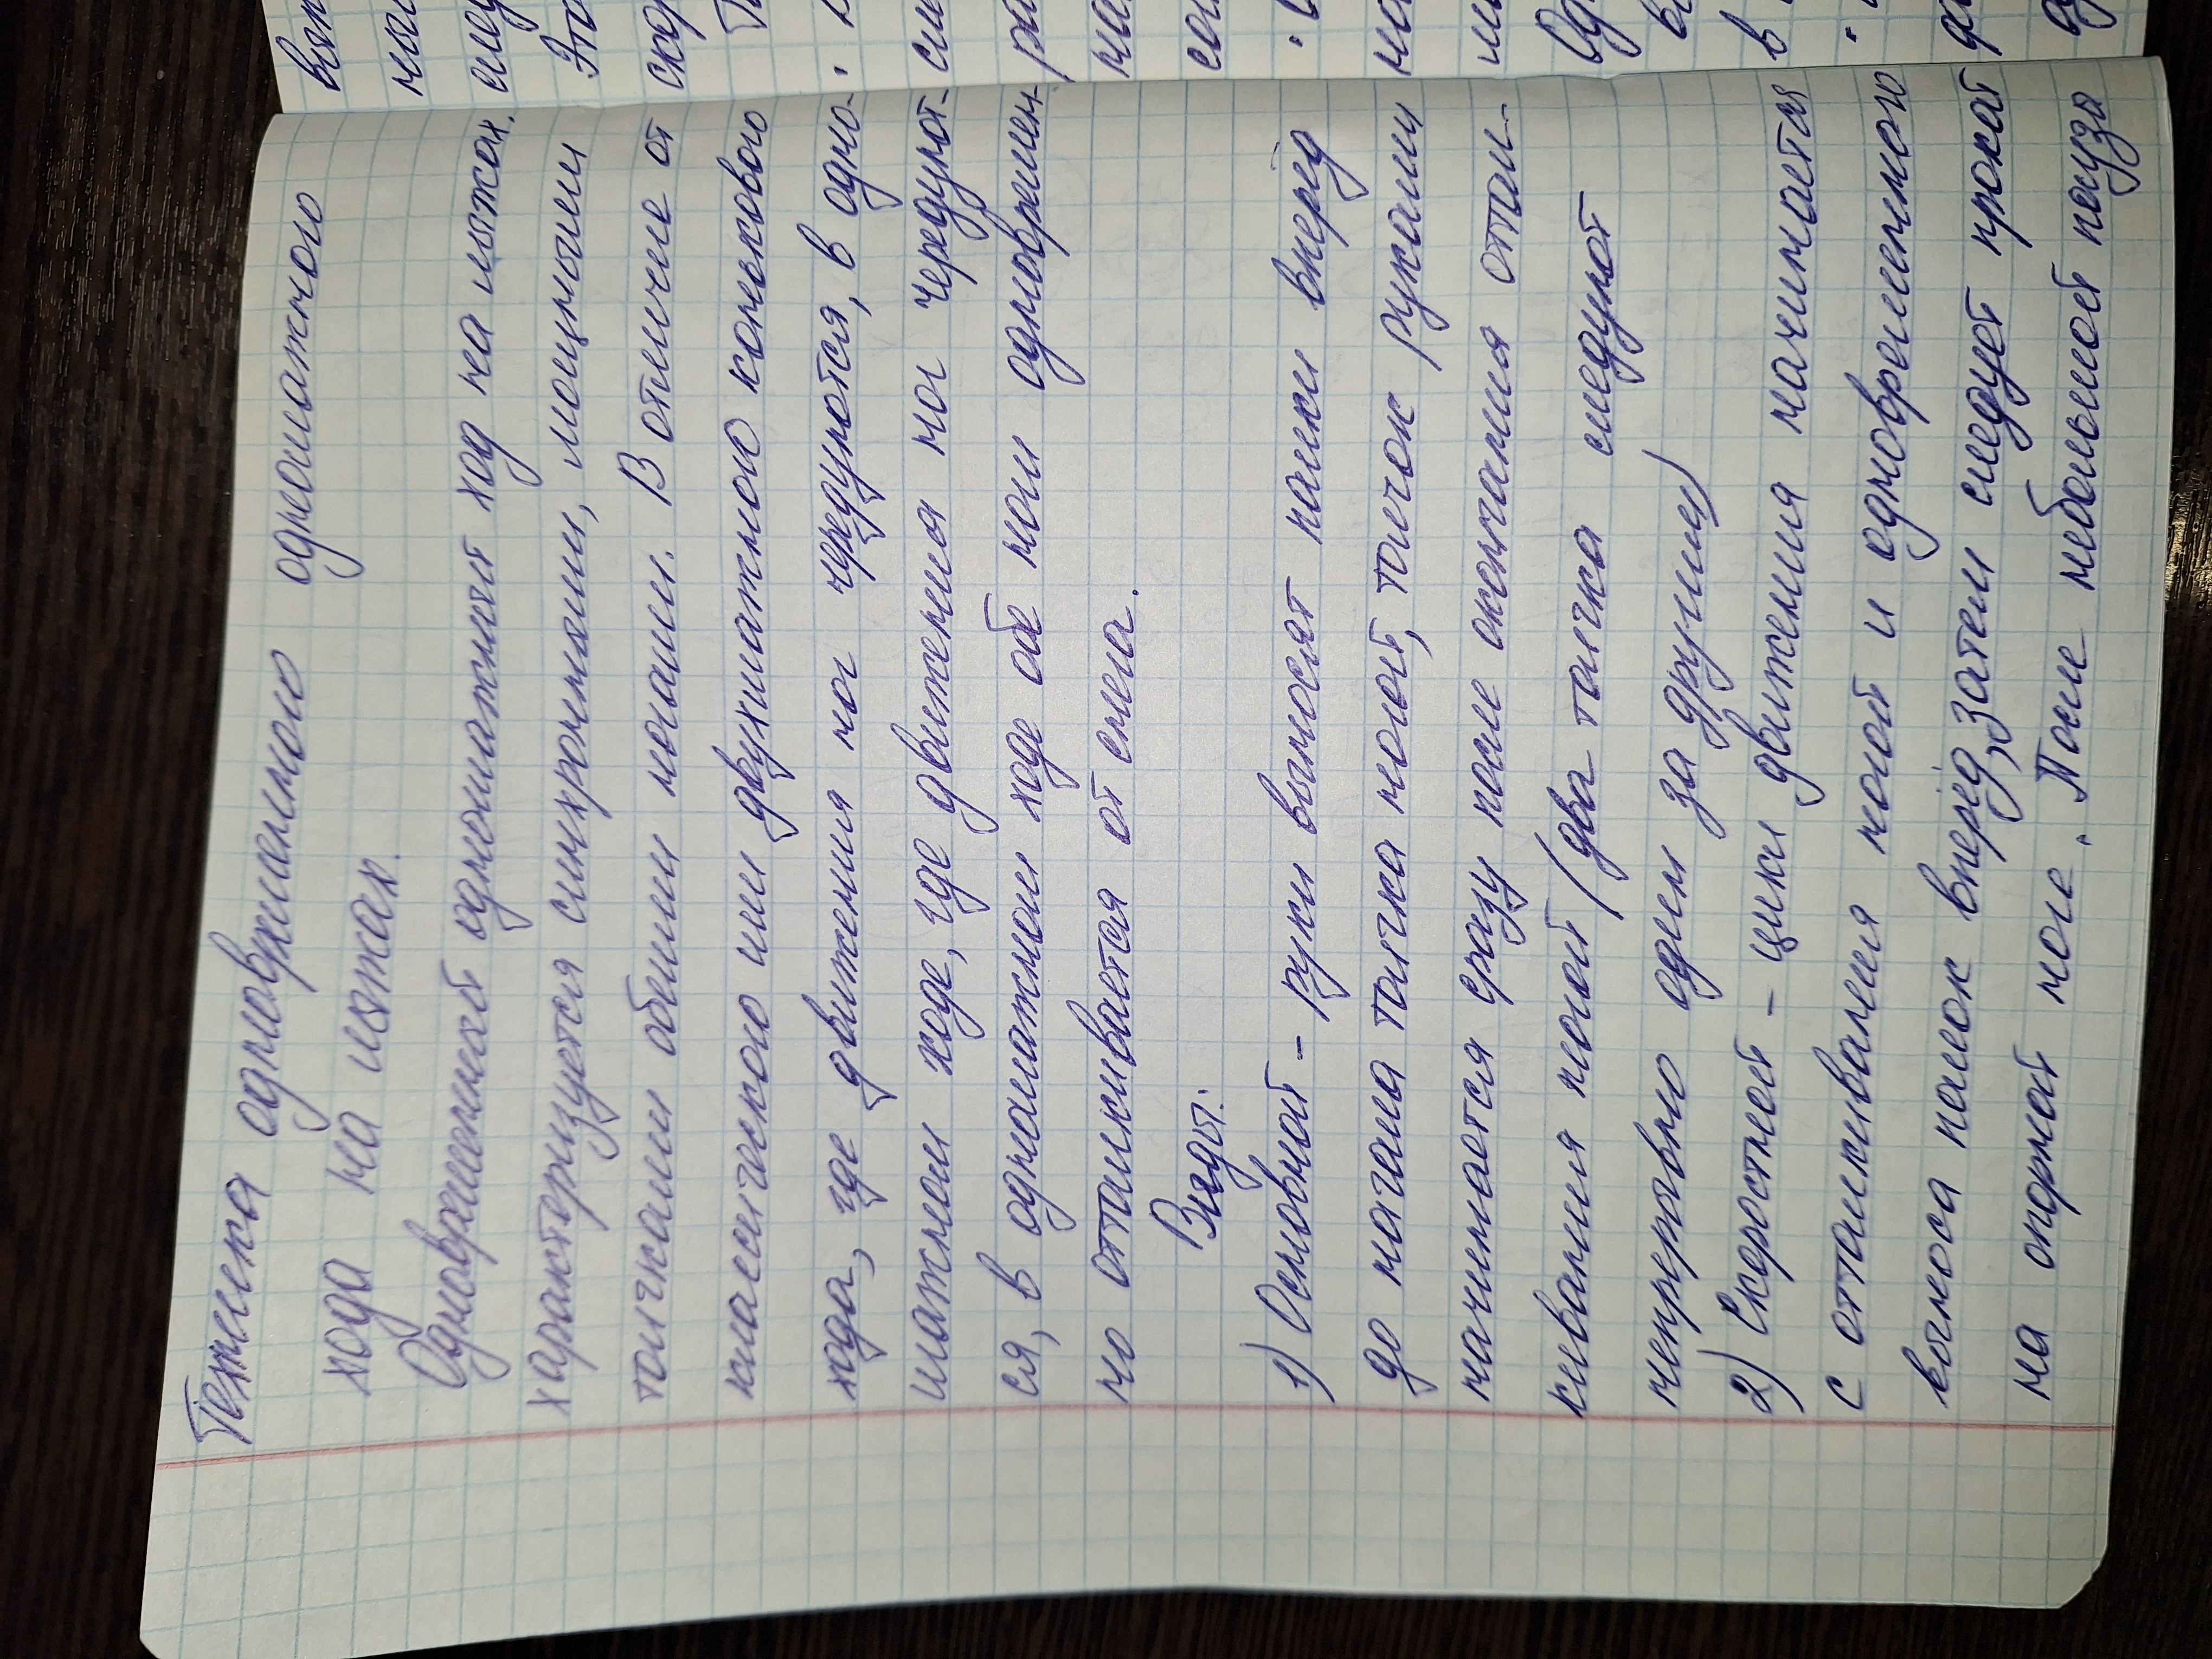 Техника одновременного одношажного
хода на лыжах.
Одновременный одношажный ход на лыжах.
характеризуется синхронными, мощными
толчками обеими ногами. В отличие от
классического или двухшажного конькового
хода, где движения ног чередуются, в одно-
шажном ходе, где движения ног чередуют-
ся, в одношажном ходе обе ноги одновремен-
но отталкивается от снега.
Виды:
1) Основной - руки выносят палки вперёд
до начала толчка ногой, толчок руками
начинается сразу после окончания оттал-
кивания ногой (два толчка следуют
непрерывно один за другим)
2) Скоростной - цикл движения начинается
с отталкивания ногой и одновременного
выноса палок вперёд, затем следует прокат
на опорной ноге. После небольшой пауза